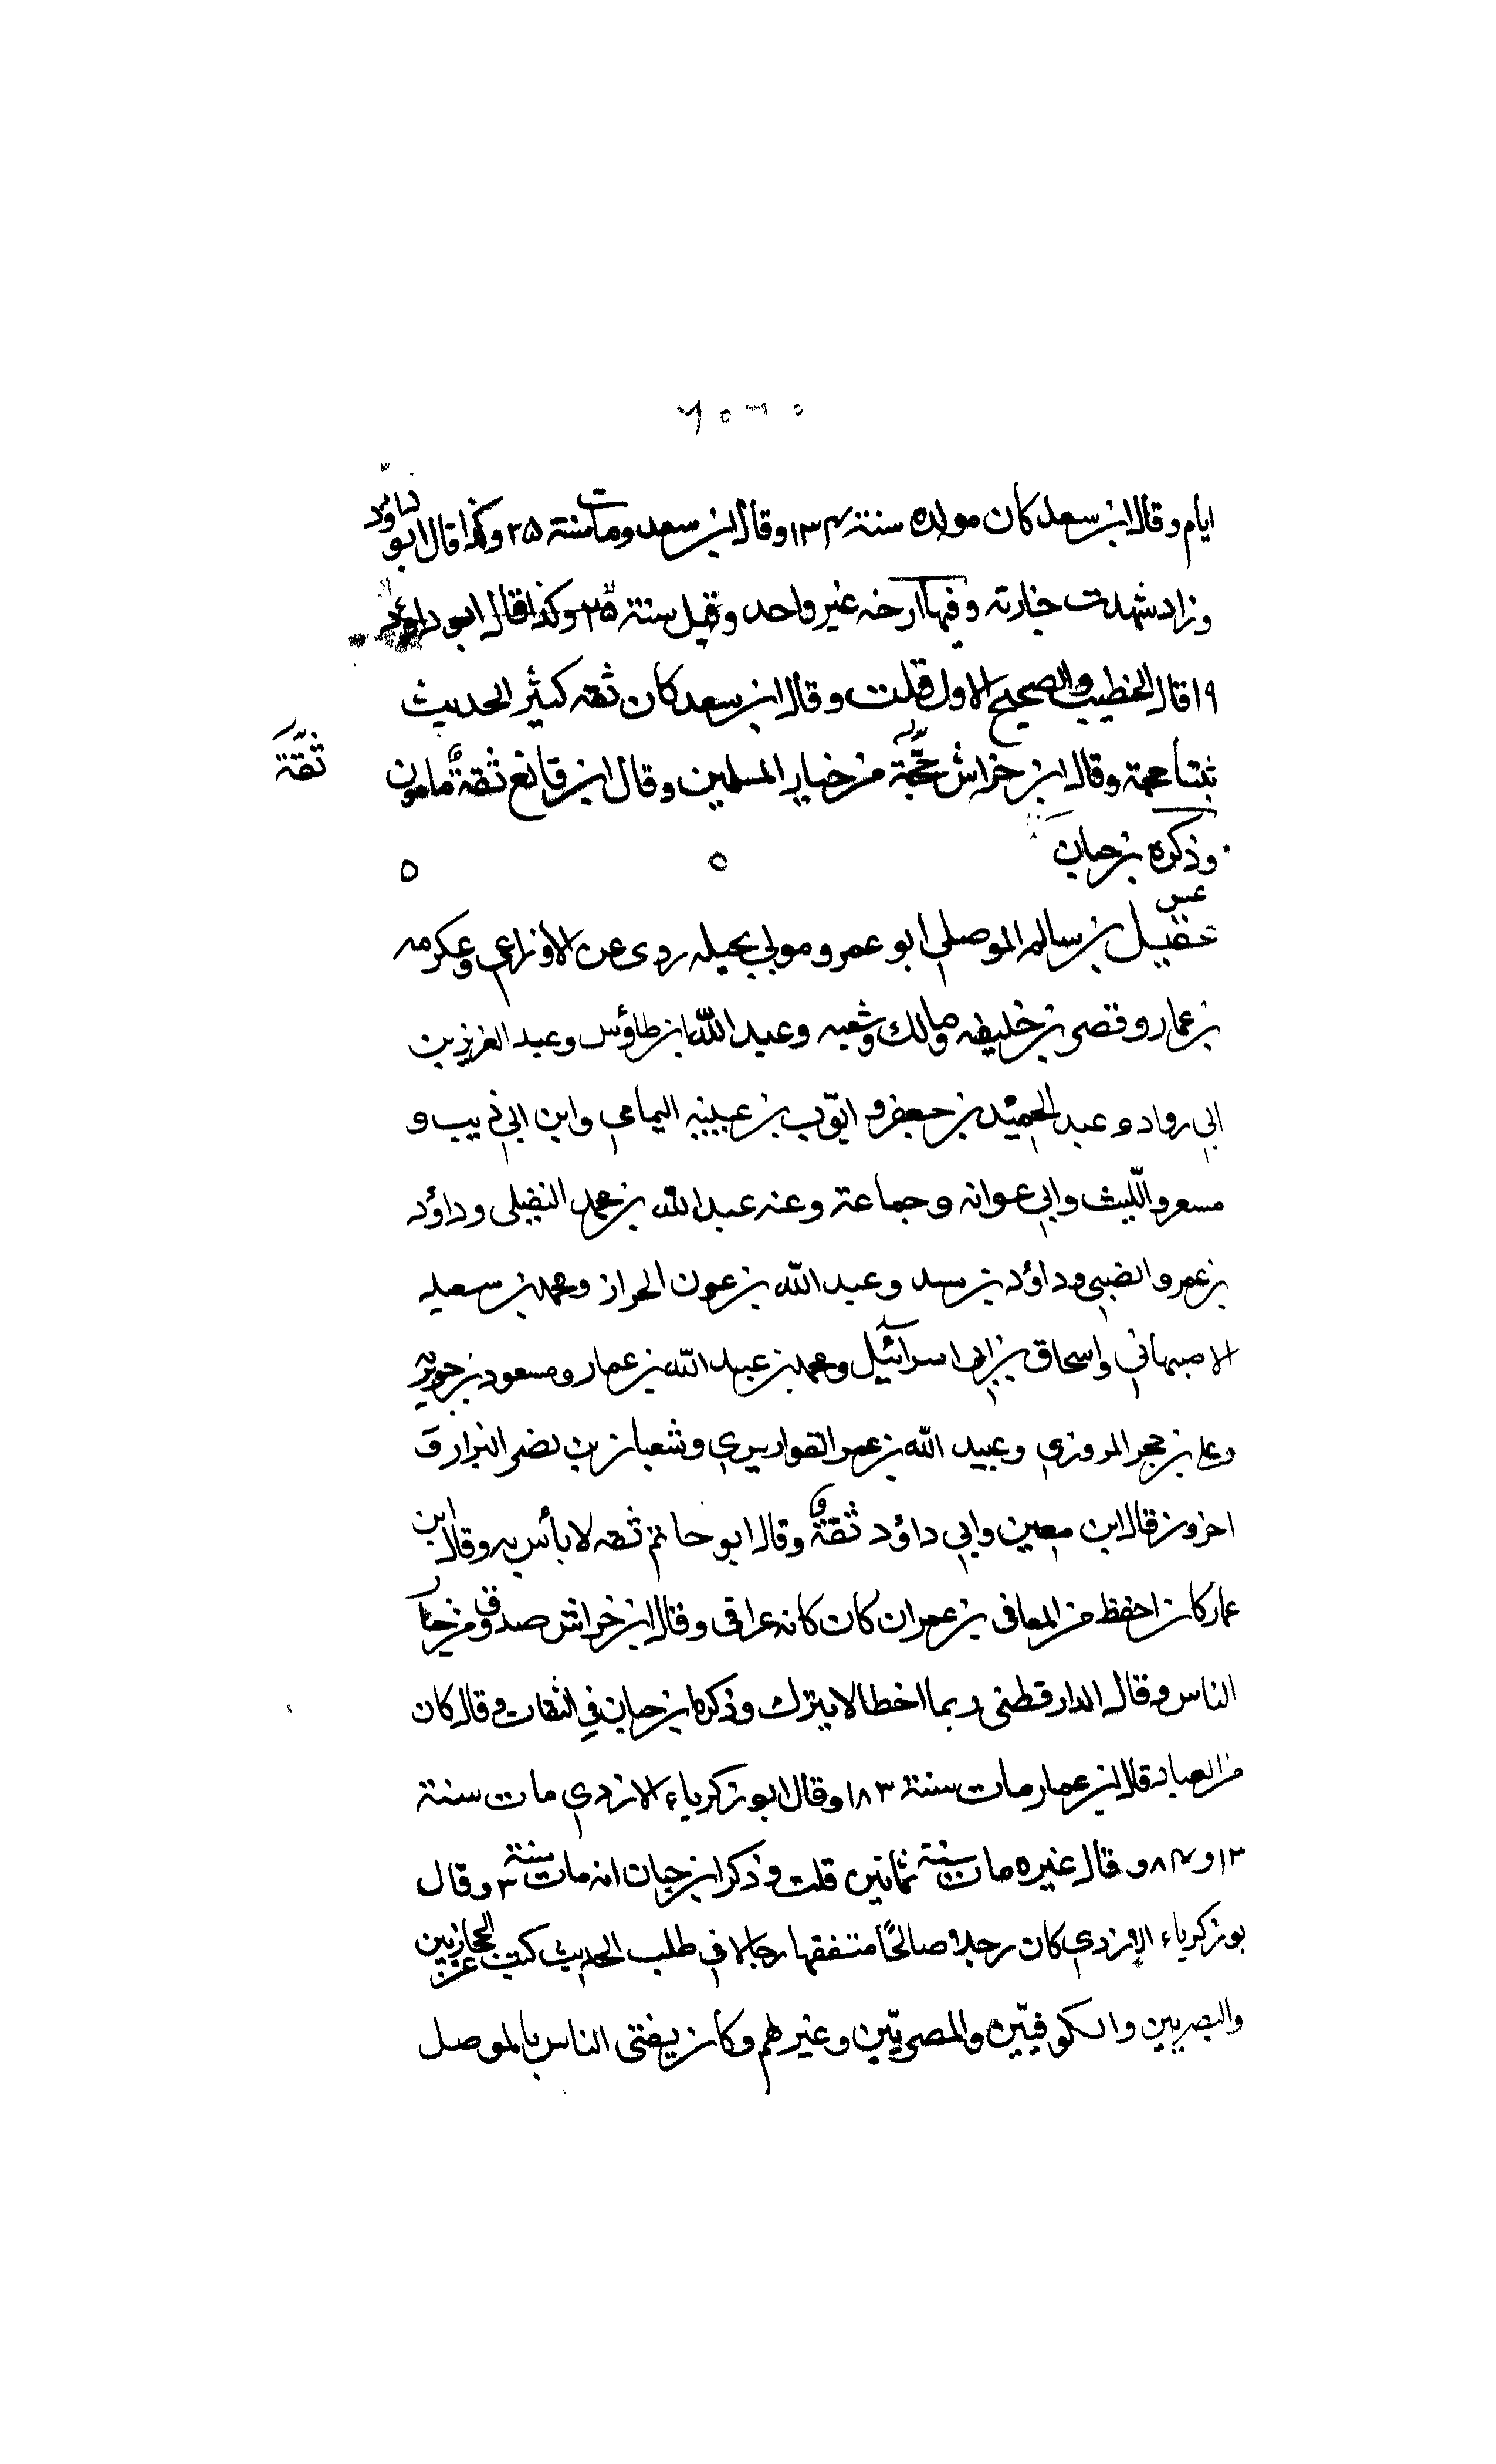 ايام وقال ابن سعد كان مولده سنة ١٣٤ وقال ابن سعد ومات سنة ٢٥ وكذا قال ابو داؤد
وزاد شهدت جنازته وفيها ارخه غير واحد وقيل سنة وكذا قال ابو داؤد
١٩ قال الخطيب والصحيح الاول قلت وقال ابن سعد كان ثقه كثير الحديث
ثبتا حجة وقال ابن خراش حجّة من خيار المسلمين وقال ابن قانع ثقةٌ مامون
ثقّة
وذكره بن حبان
عس
عفيف بن سالم الموصلي ابو عمرو مولى بجيله روى عن الاوزاعي وعكرمه
بن عمار و بن خليفه ومالك وشعبه وعبد اللّه ابن طاؤس وعبد العزيز بن
ابي رواد وعبد الحميد بن جعفر و ايّوب بن عتبة اليمامي وابن ابي ذيب و
مسعر واللّيث وابي عوانه وجماعة وعنه عبد اللّه بن محمد النفيلى وداؤد
بن عمرو الضبي وداؤد بن رسيد وعبد اللّه بن عون الخراز ومحمد بن سعيد
الاصبهاني واسحاق بن ابى اسرآئيل ومحمد بن عبد اللّه بن عمار ومسعود بن جويريه
وعلى بن حجر المروزي وعبيد اللّه بن عمر القواريري و بن نصر البزار و
اخرون قال ابن معين وابي داؤد ثقةٌ وقال ابو حاتم ثقه لا بأس به وقال ابن
عمار كان احفظ من المعافى بن عمران كان كانه عراقى وقال ابن خراش صدوق من خيار
الناس وقال الدارقطنى ربما اخطا لا يترك وذكره ابن حبان في الثقات وقال كان
من العباد قال ابن عمار مات سنة ١٨٣ وقال ابو زكرياء الازدي مات سنة
١٣ و ٨٤ وقال غيره مات سنة ثمانين قلت وذكر ابن حبان انه مات سنة ٣ وقال
بو زكرياء الازدي كان رجلا صالحًا متفقها رحالا في طلب الحديث كتب عن الحجازيين
والبصريين والكوفيّين والمصريّين وغيرهم وكان يفتى الناس بالموصل